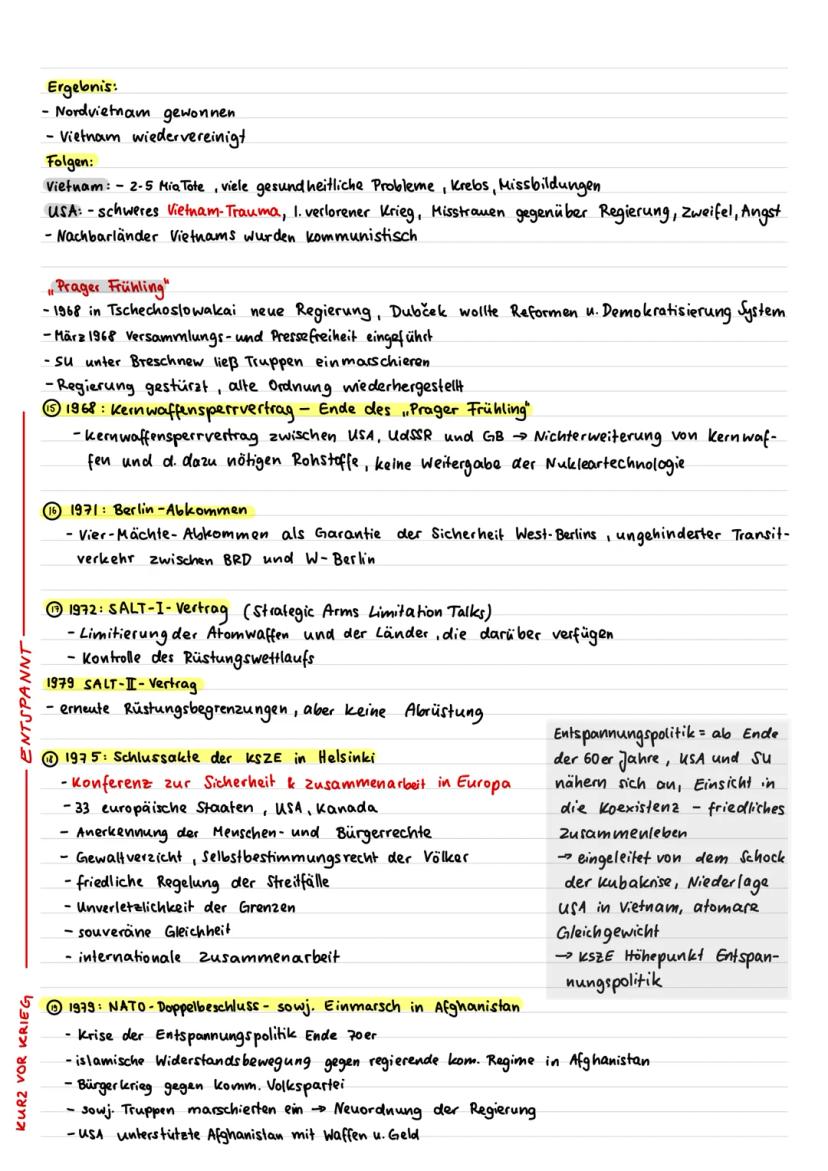 Ergebnis:
- Nordvietnam gewonnen
- Vietnam wiedervereinigt
Folgen:
Vietnam: - 2-5 Mio Tote, viele gesundheitliche Probleme, Krebs, Missbildungen
USA: - schweres Vietnam-Trauma, 1. verlorener Krieg, Misstrauen gegenüber Regierung, Zweifel, Angst
- Nachbarländer Vietnams wurden kommunistisch
„Prager Frühling"
- 1968 in Tschechoslowakai neue Regierung, Dubček wollte Reformen u. Demokratisierung System
- März 1968 Versammlungs- und Pressefreiheit eingeführt
- SU unter Breschnew ließ Truppen einmarschieren
- Regierung gestürzt, alte Ordnung wiederhergestellt
⑮ 1968: Kernwaffensperrvertrag – Ende des „Prager Frühling"
- Kernwaffensperrvertrag zwischen USA, UdSSR und GB → Nichterweiterung von Kernwaf-
fen und d. dazu nötigen Rohstoffe, keine Weitergabe der Nukleartechnologie
⑯ 1971: Berlin-Abkommen
- Vier-Mächte-Abkommen als Garantie der Sicherheit West-Berlins, ungehinderter Transit-
verkehr zwischen BRD und W-Berlin
⑰ 1972: SALT-I-Vertrag (Strategic Arms Limitation Talks)
- Limitierung der Atomwaffen und der Länder, die darüber verfügen
- Kontrolle des Rüstungswettlaufs
1979 SALT-II-Vertrag
- erneute Rüstungsbegrenzungen, aber keine Abrüstung
⑱ 1975: Schlussakte der KSZE in Helsinki
- Konferenz zur Sicherheit & Zusammenarbeit in Europa
- 33 europäische Staaten, USA, Kanada
- Anerkennung der Menschen- und Bürgerrechte
- Gewaltverzicht, Selbstbestimmungsrecht der Völker
- friedliche Regelung der Streitfälle
- Unverletzlichkeit der Grenzen
- souveräne Gleichheit
- internationale Zusammenarbeit
Entspannungspolitik = ab Ende
der 60er Jahre, USA und SU
nähern sich an, Einsicht in
die Koexistenz – friedliches
Zusammenleben
→ eingeleitet von dem Schock
der Kubakrise, Niederlage
USA in Vietnam, atomare
Gleichgewicht
→ KSZE Höhepunkt Entspan-
nungspolitik
ENTSPANNT
⑲ 1979: NATO-Doppelbeschluss - sowj. Einmarsch in Afghanistan
- Krise der Entspannungspolitik Ende 70er
- islamische Widerstandsbewegung gegen regierende kom. Regime in Afghanistan
- Bürgerkrieg gegen komm. Volkspartei
- sowj. Truppen marschierten ein → Neuordnung der Regierung
- USA unterstützte Afghanistan mit Waffen u. Geld
KURZ VOR KRIEG